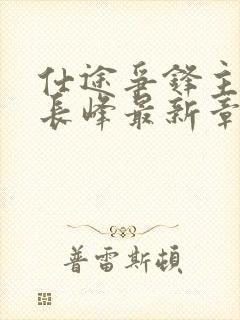 仕途争锋主
长峰最新章
普雷斯顿